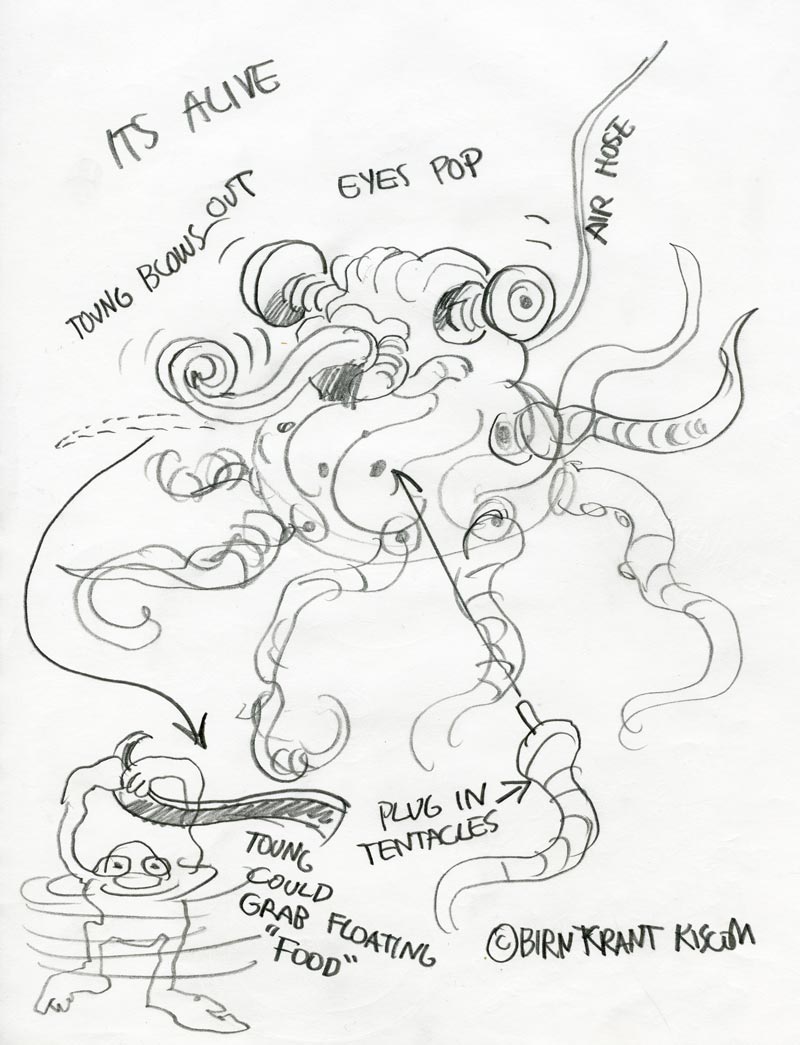 ITS ALIVE
EYES POP
AIR HOSE
TOUNG BLOWS OUT
PLUG IN
TENTACLES
TOUNG
COULD
GRAB FLOATING
"FOOD"
©BIRNKRANT KISCOM